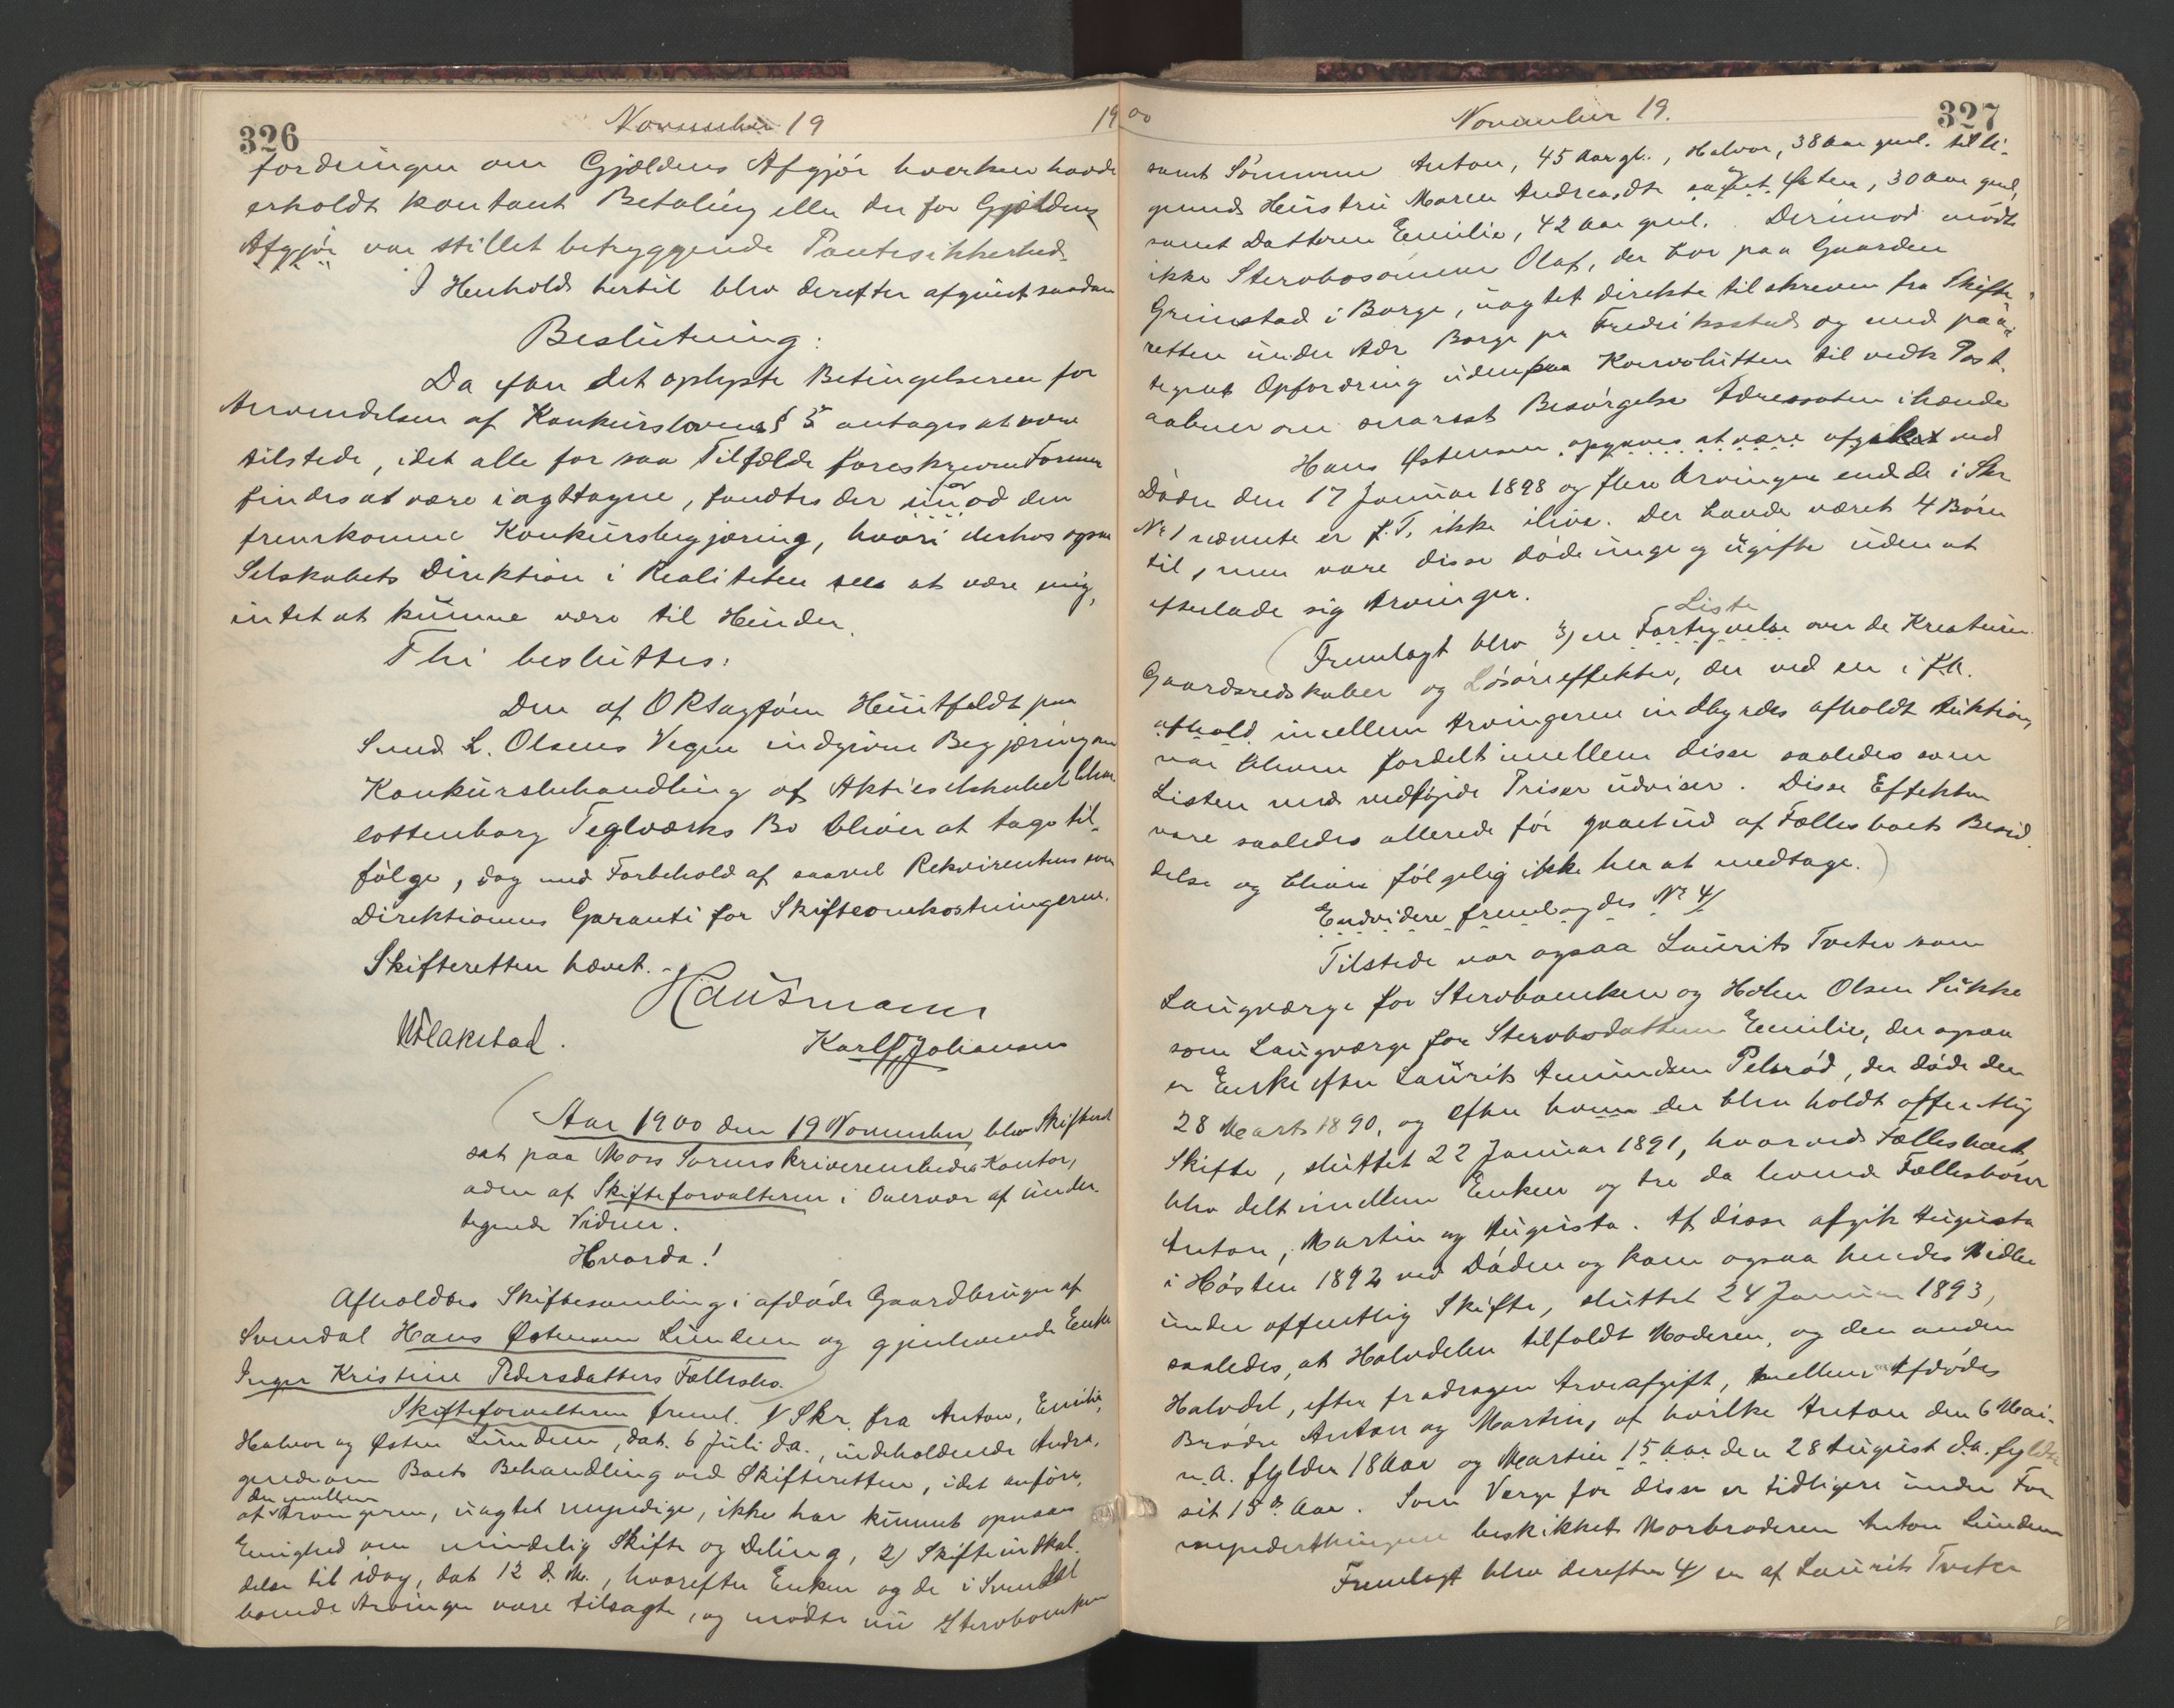 326
November 19
19
fordringen om Gjældens Afgjør hverken havde
erholdt kontant Betaling eller der for Gjældens
Afgjør var stillet betryggende Pantesikkerhed.
I Henhold hertil blev derefter afgivet saadan
Beslutning:
Da efter det oplyste Betingelserne for
Anvendelsen af Konkurslovens § 5 antages at være
tilstede, idet alle for saa Tilfælde foreskrevne Former
findes at være iagttagne, fandtes der imod den
fremkomne Konkursbegjæring, hvori derhos ogsaa
Selskabets Direktion i Realiteten sees at være enig,
intet at kunne være til Hinder.
Thi besluttes:
Den af ORsagfører Huitfeldt paa
Lund L. Olsens Vegne indgivne Begjæring om
Konkursbehandling af Aktieselskabet Char
lottenborg Teglværks Bo bliver at tage til-
følge, dog med Forbehold af saavel Rekvirentens som
Direktionens Garanti for Skifteomkostningerne.
Skifteretten hævet.
Hausmann
Karl Johansen
Aar 1900 den 19 November blev Skifteret
sat paa Moss Sorenskriverembedes Kontor,
aden af Skifteforvalteren i Overvær af under-
tegnede Vidner.
Hvorda!
Afholdtes Skiftesamling i afdøde Gaardbruger af
Svendal Hans Østensen Lunden og gjenlevende Enke
Inger Kristine Pedersdatters Fællesbo.
Skifteforvalteren freml. 1 Skr. fra Anton, Emilie,
Halvor og Østen Lunden, dat. 6 Juli d.a., indeholdende Andra.
gende om Boets Behandling ved Skifteretten, idet anføres,
de imellem
at Arvingerne, uagtet myndige, ikke har kunnet opnaas
Enighed om mindelig Skifte og Deling, 2) Skifteindkal.
delse til idag, dat 12 d.M., hvorefter Enken og de i Svendal
boende Arvinger vare tilsagte, og mødte nu Stervboenken
00
November 19.
327
samt Sønnerne Anton, 45 Aar gl., Halvor, 38 Aar gml. tilli-
gemed Hustru Maren Andreasdtr samt Østen, 30 Aar gml,
samt Datteren Emilie, 42 Aar gml. Derimod mødte
ikke Stervbosønnen Olaf, der bor paa Gaarden
Grimstad i Borge, uagtet direkte tilskreven fra Skifte-
retten under Adr Borge pr Fredriksstad og med paa-
tegnet Opfordring udenpaa Konvolutten til vedk Post-
aabner om snarest Besørgelse Adressaten ihænde
Hans Østensen opgaves at være afgaaet ved
Døden den 17 Januar 1898 og flere Arvinger end de i Skr
No 1 nævnte er f.T. ikke ilive. Der havde været 4 Børn
til, men vare disse døde unge og ugifte uden at
efterlade sig Arvinger.
Liste
Fremlagt blev 3) en Fortegnelse over de Kreaturer
Gaardsredskaber og Løsøreeffekter, der ved en i f.A.
afhold imellem Arvingerne indbyrdes afholdt Auktion,
var bleven fordelt imellem disse saaledes som
Listen med vedføiede Priser udviser. Disse Effekter
vare saaledes allerede før gaaet ud af Fællesboets Besid.
delse og bliver følgelig ikke her at medtage.)
Endvidere fremlagdes No 4)
Tilstede var ogsaa Laurits Tveter som
Laugværge for Stervboenken og Olsen Sukke
som Laugværge for Stervbodatteren Emilie, der ogsaa
er Enke efter Laurits Amundsen Pelsrød, der døde den
28 Marts 1890, og efter hvem der blev holdt offentlig
Skifte, sluttet 22 Januar 1891, hvorved Fællesboet
blev delt imellem Enken og tre da levende Fællesbørn
Anton, Martin og Augusta. Af disse afgik Augusta
i Høsten 1892 ved Døden og kom ogsaa hendes Midler
under offentlig Skifte, sluttet 24 Januar 1893,
saaledes, at Halvdelen tilfaldt Moderen, og den anden
Halvdel, efter fradragen Arveafgift, mellem Afdødes
Brødre Anton og Martin, af hvilke Anton den 6 Mai.
n.A. fylder 18 Aar og Martin 15 Aar den 28 August d.a. fyldte
sit 15de Aar. Som Værge for disse er tidligere under For
mynderthingene beskikket Morbroderen Anton Lunden
Fremlagt blev derefter 4) en af Laurits Tveter